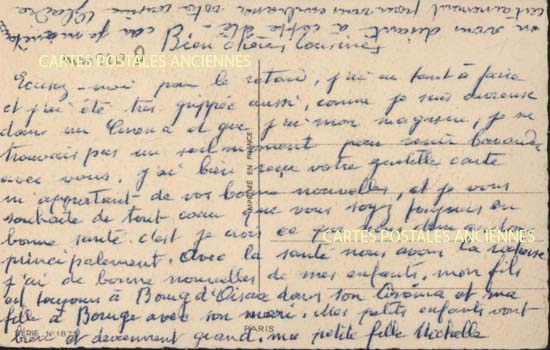 en vous disant à
certainement pour vous embrasser votre cousine
Bien chères Cousines
CARTES POSTALES ANCIENNES
Excusez-moi pour le retard, j'ai eu tant à faire
et j'ai été très grippée aussi, comme je suis ouvreuse
dans un Cinéma et que j'ai mon magasin, je ne
trouvais pas un seul moment pour venir bavarder
avec vous. j'ai bien reçu votre gentille carte
m'apportant de vos bonne nouvelles, et je vous
souhaite de tout coeur que vous soyez toujours en
bonne santé. c'est je crois ce
CARTES POSTALES ANCIENNES
principalement. Avec la santé nous avons la
j'ai de bonne nouvelles de mes enfants. mon fils
est toujours à Bourg d'Oisans dans son Cinéma et ma
fille à Bourge avec son mari. Mes petits enfants vont
bien et deviennent grand. ma petite fille Michelle
IMPRIMÉ EN FRANCE
SÉRIE N° 1875
PARIS